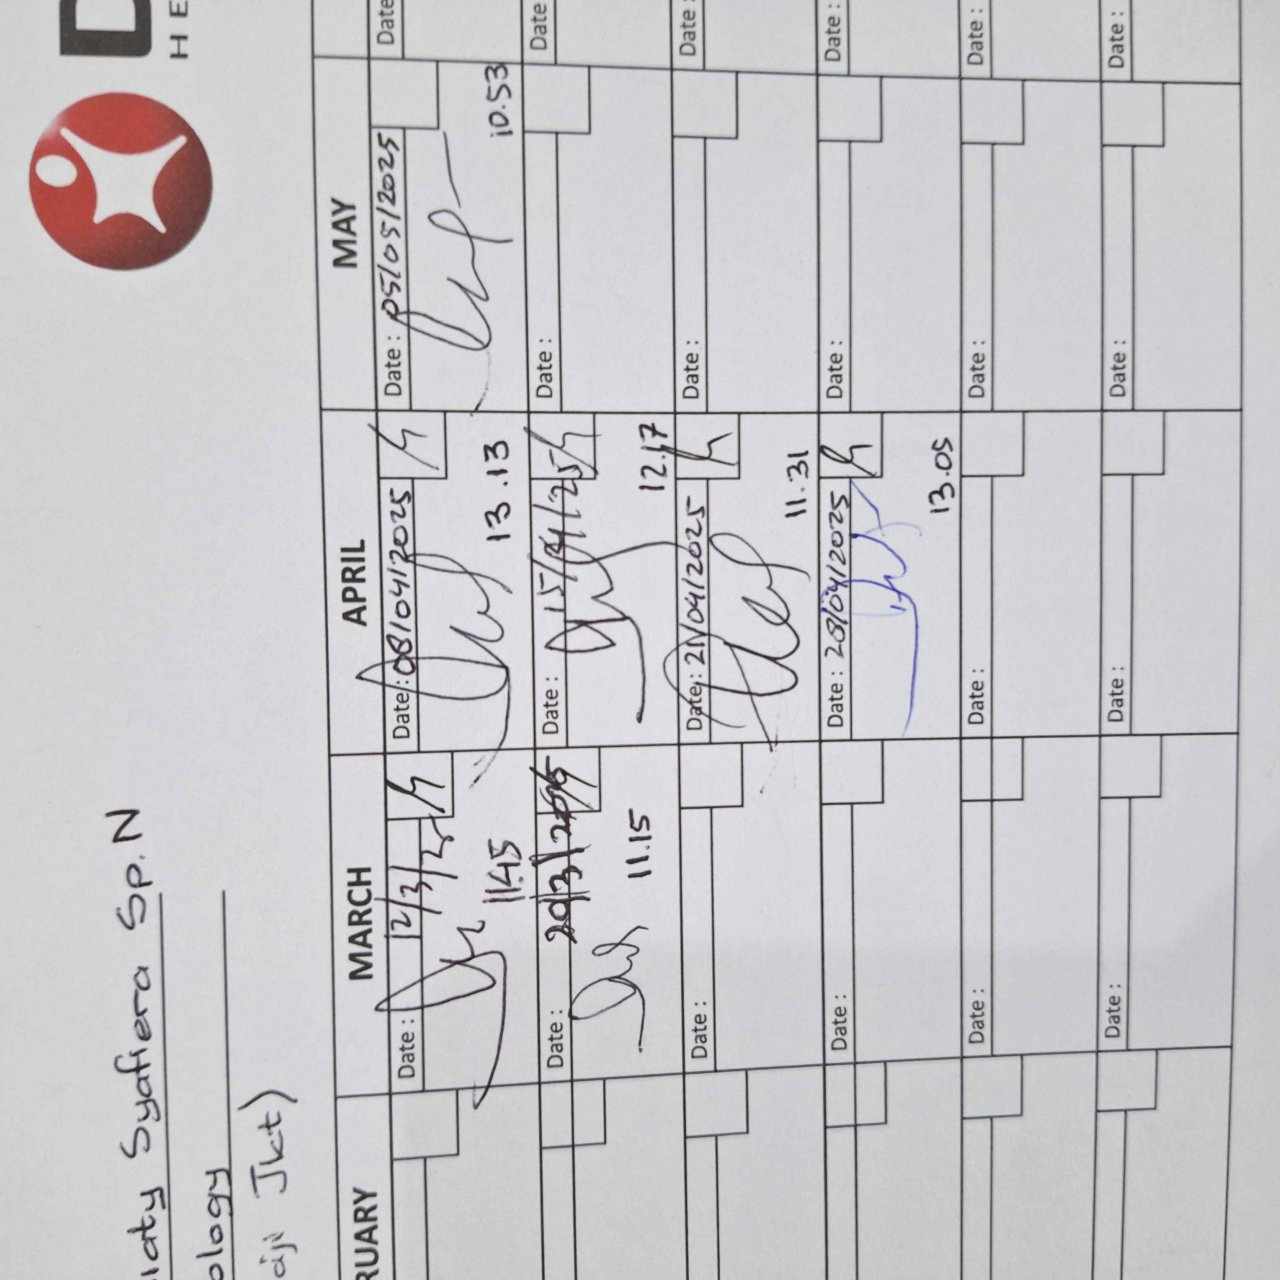 D
HE
iaty Syafiera Sp.N
ology
aji Jkt)
RUARY MARCH APRIL MAY
Date : 12/3/25 Date : 08/04/2025 Date : 05/05/2025 Date
11.45 13.13 10.53
Date : 20/3/2025 Date : 15/04/25 Date : Date
11.15 12.17
Date : Date : 21/04/2025 Date : Date :
11.31
Date : Date : 28/04/2025 Date : Date :
13.05
Date : Date : Date : Date :
Date : Date : Date : Date :